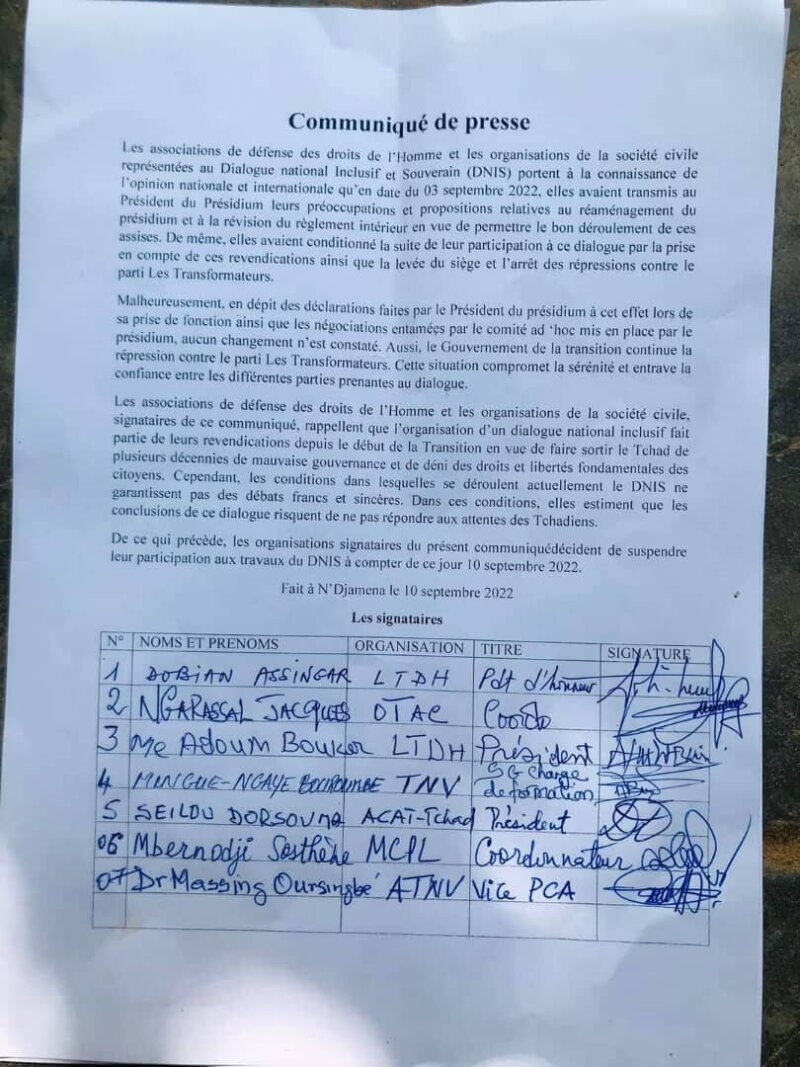 Communiqué de presse
Les associations de défense des droits de l'Homme et les organisations de la société civile
représentées au Dialogue national Inclusif et Souverain (DNIS) portent à la connaissance de
l'opinion nationale et internationale qu'en date du 03 septembre 2022, elles avaient transmis au
Président du Présidium leurs préoccupations et propositions relatives au réaménagement du
présidium et à la révision du règlement intérieur en vue de permettre le bon déroulement de ces
assises. De même, elles avaient conditionné la suite de leur participation à ce dialogue par la prise
en compte de ces revendications ainsi que la levée du siège et l'arrêt des répressions contre le
parti Les Transformateurs.
Malheureusement, en dépit des déclarations faites par le Président du présidium à cet effet lors de
sa prise de fonction ainsi que les négociations entamées par le comité ad 'hoc mis en place par le
présidium, aucun changement n'est constaté. Aussi, le Gouvernement de la transition continue la
répression contre le parti Les Transformateurs. Cette situation compromet la sérénité et entrave la
confiance entre les différentes parties prenantes au dialogue.
Les associations de défense des droits de l'Homme et les organisations de la société civile,
signataires de ce communiqué, rappellent que l'organisation d'un dialogue national inclusif fait
partie de leurs revendications depuis le début de la Transition en vue de faire sortir le Tchad de
plusieurs décennies de mauvaise gouvernance et de déni des droits et libertés fondamentales des
citoyens. Cependant, les conditions dans lesquelles se déroulent actuellement le DNIS ne
garantissent pas des débats francs et sincères. Dans ces conditions, elles estiment que les
conclusions de ce dialogue risquent de ne pas répondre aux attentes des Tchadiens.
De ce qui précède, les organisations signataires du présent communiquédécident de suspendre
leur participation aux travaux du DNIS à compter de ce jour 10 septembre 2022.
Fait à N'Djamena le 10 septembre 2022
Les signataires
N° NOMS ET PRENOMS ORGANISATION TITRE SIGNATURE
1 DOBIAN ASSINGAR LTDH Pdt d'honneur
2 NGARASSAL JACQUES OTAC Coordo
3 Me Adoum Boukar LTDH Président
4 MINGUE-NGAYE TNV SG Chargé de formation
5 SEILOU DORSOUMA ACAT-Tchad Président
06 Mbernodji Sosthène MCPL Coordonnateur
07 Dr Massing Oursingbé ATNV Vice PCA